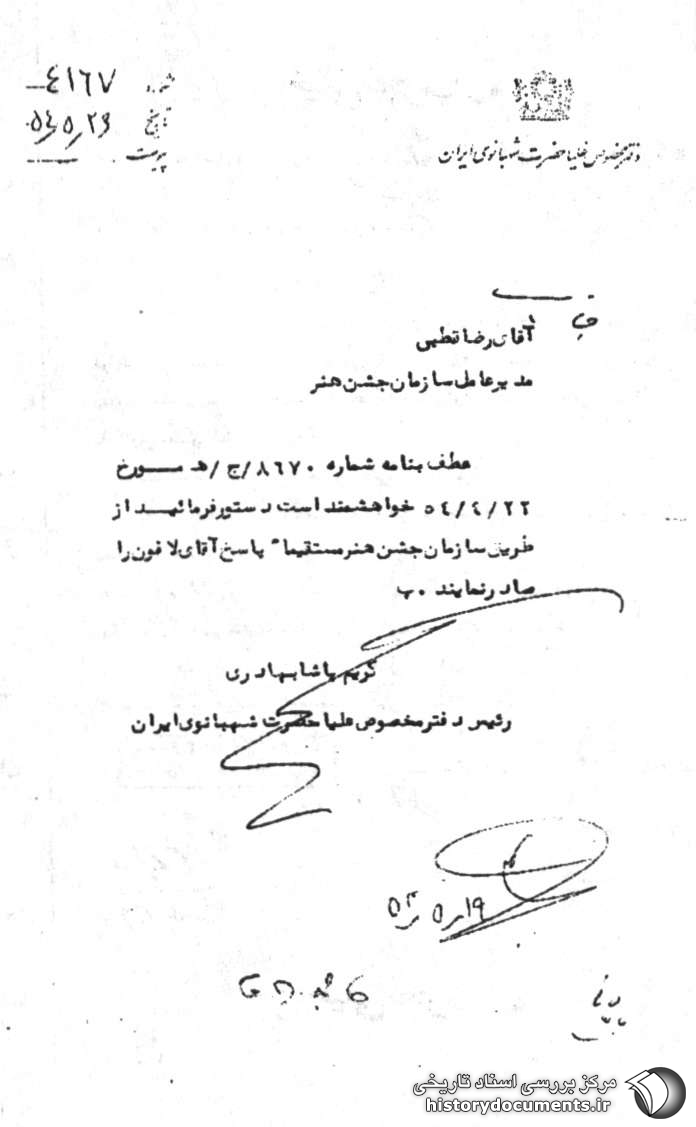 شماره ٤١٦٧
تاریخ
پیوست
دفتر مخصوص علیاحضرت شهبانوی ایران
جناب
آقای رضا قطبی
مدیرعامل سازمان جشن هنر
عطف بنامه شماره ٨٦٧٠/ج/هـ مورخ
٥٤/٤/٢٢ خواهشمند است دستور فرمائید از
طریق سازمان جشن هنر مستقیما" پاسخ آقای لافون را
صادر نمایند .ب
کریم پاشا بهادری
رئیس دفتر مخصوص علیا حضرت شهبانوی ایران
مرکز بررسی اسناد تاریخی
historydocuments.ir